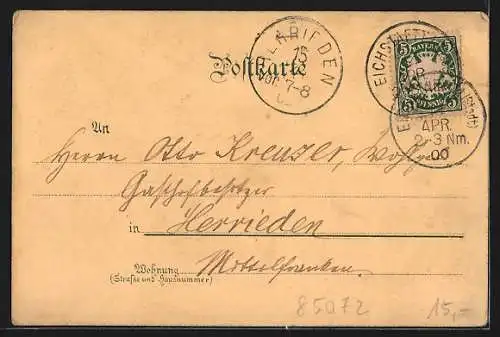 HERRIEDEN
15
7-8
Postkarte
EICHSTAETT
BAYERN
5 5
5 5
PFENNIG
(Stadt)
APR.
2-3 Nm.
00
An
Herrn Otto Kreuzer,
Gasthofbesitzer
in Herrieden
Wohnung
(Straße und Hausnummer)
Mittelfranken.
85072
15,-